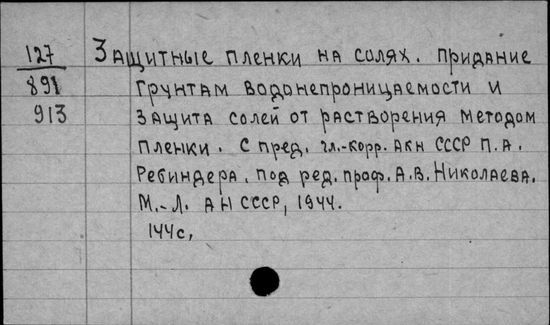 127 Защитные пленки на солях. Придание
891 грунтам водонепроницаемости и
913 защита солей от растворения методом
пленки. С пред. гл.-корр. Акн СССР П.А.
Ребиндера. под ред. проф. А.В. Николаева.
М.-Л. АН СССР, 1944.
144с,